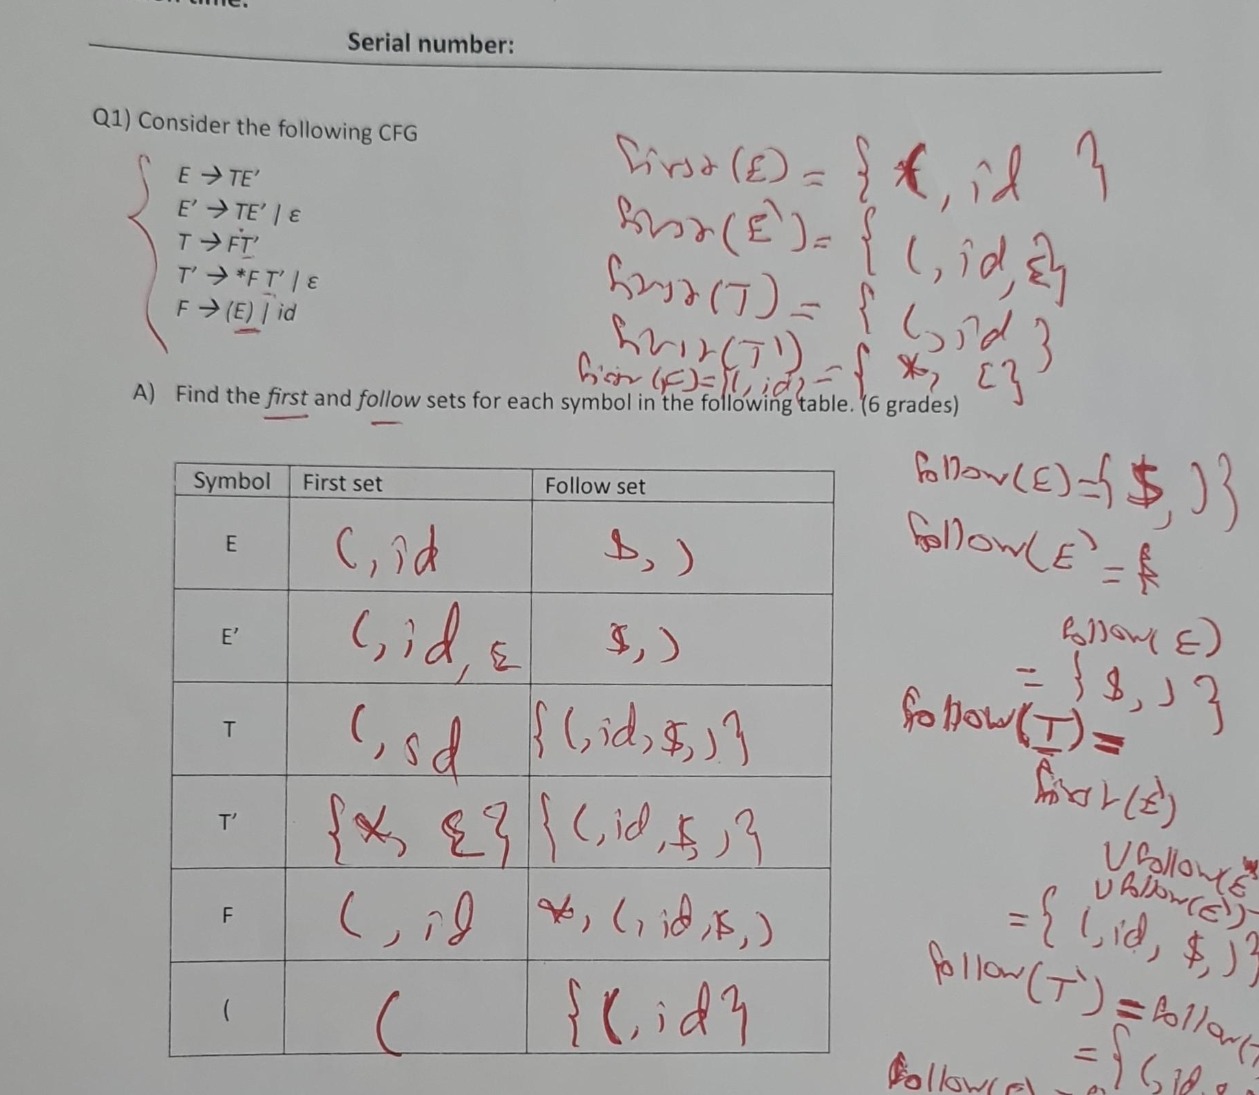 time.
Serial number:
Q1) Consider the following CFG
E → TE'
E' → TE' | ε
T → FT'
T' → *F T' | ε
F → (E) | id
first(E) = { (, id }
first(E') = { (, id, ε}
first(T) = { (, id }
first(T') = { *, ε}
first(F) = {(, id}
A) Find the first and follow sets for each symbol in the following table. (6 grades)
Symbol First set Follow set
E (, id $, )
E' (, id, ε $, )
T (, id {(, id, $, )}
T' {*, ε} {(, id, $, )}
F (, id *, (, id, $, )
( ( {(, id}
follow(E)={$, )}
follow(E' =
follow(E)
= {$, )}
follow(T) =
first(E')
U follow(E
U follow(E')
= { (, id, $, )}
follow(T') = follow(T
= { (, id, $
follow(